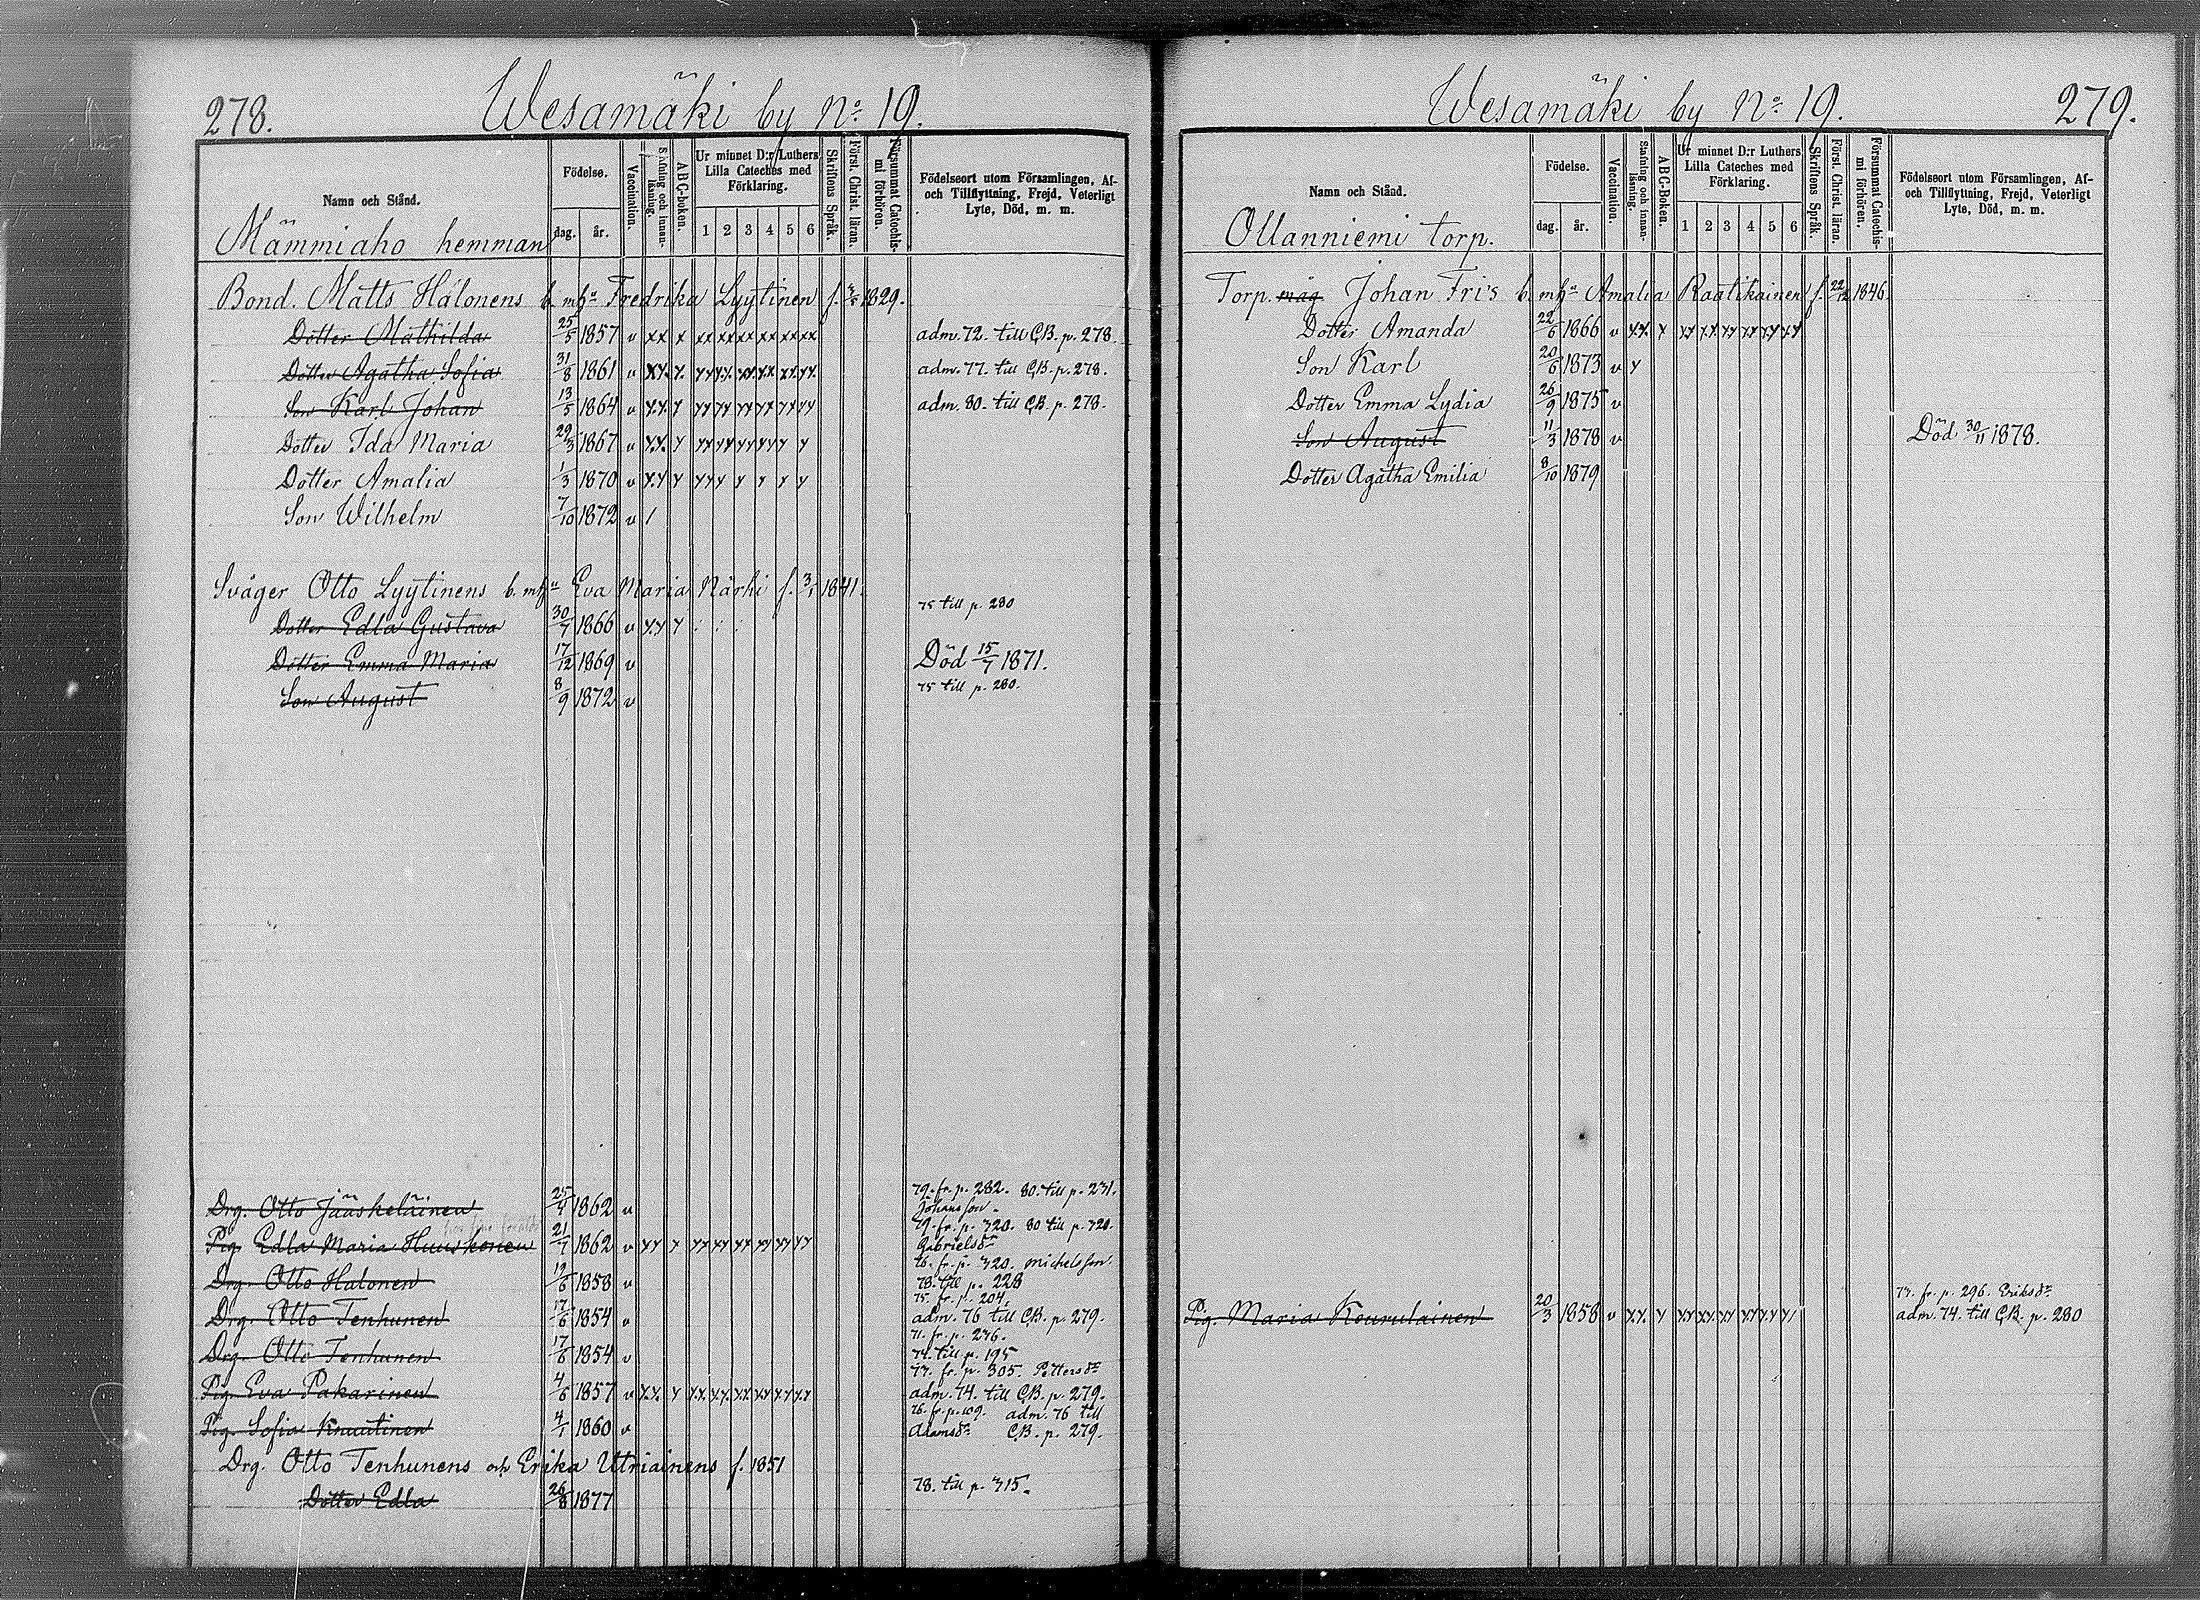 278.
Wesamäki by No 19.
Namn och Stånd.
Födelse.
dag. år.
Vaccination.
Stafning och innanläsning.
ABC-boken.
Ur minnet D:r Luthers Lilla Cateches med Förklaring.
1 2 3 4 5 6
Skriftens Språk.
Förståt. Christ. läran.
Försummat Catechismi förhören.
Födelseort utom Församlingen, Af- och Tillflyttning, Frejd, Veterligt Lyte, Död, m. m.
Mämmiaho hemman
Bond. Matts Halonens b. m. hu Fredrika Lyytinen f. 1829.
Dotter Mathilda 25/5 1857 v xx x xx xx xx xx xx xx adm. 72. till C.B. p. 278.
Dotter Agatha Sofia 31/8 1861 v adm. 77. till C.B. p. 278.
Son Karl Johan 13/5 1864 v adm. 80. till C.B. p. 278.
Dotter Ida Maria 29/3 1867 v
Dotter Amalia 1/3 1870 v
Son Wilhelm 7/10 1872 v /
Svåger Otto Lyytinens b. m. hu Eva Maria Närhi f. 3/1 1841.
Dotter Edla Gustava 30/7 1866 v 75 till p. 280
Dotter Emma Maria 17/12 1869 v Död 15/7 1871.
Son August 8/9 1872 v 75 till p. 280.
Drg. Otto Jääskeläinen 25/4 1862 v 79. fr. p. 282. 80. till p. 231. Johansson.
Pig. Edla Maria Huuskonen 21/7 1862 v 79. fr. p. 320. 80 till p. 320. Gabrielsdr
Drg. Otto Halonen 19/6 1858 v 76. fr. p. 320. Michelsson. 78. till p. 228
Drg. Otto Tenhunen 17/6 1854 v 75. fr. p. 204. adm. 76 till C.B. p. 279.
Drg. Otto Tenhunen 17/6 1854 v 71. fr. p. 276. 74. till p. 195
Pig. Eva Pakarinen 4/6 1857 v 73. fr. p. 305. Pettersdr adm. 74. till C.B. p. 279.
Pig. Sofia Knuutinen 4/1 1860 v 76. fr. p. 109. adm. 76 till Adamsdr C.B. p. 279.
Drg. Otto Tenhunens och Erika Utriainens f. 1851
Dotter Edla 26/8 1877 78. till p. 315.
Wesamäki by No 19.
279.
Namn och Stånd.
Födelse.
dag. år.
Vaccination.
Stafning och innanläsning.
ABC-boken.
Ur minnet D:r Luthers Lilla Cateches med Förklaring.
1 2 3 4 5 6
Skriftens Språk.
Förståt. Christ. läran.
Försummat Catechismi förhören.
Födelseort utom Församlingen, Af- och Tillflyttning, Frejd, Veterligt Lyte, Död, m. m.
Ollanniemi torp.
Torp. måg Johan Fris b. m. hu Amalia Raatikainen f. 22/12 1846.
Dotter Amanda 22/6 1866 v
Son Karl 20/6 1873 v
Dotter Emma Lydia 26/9 1875 v
Son August 11/3 1878 v Död 30/11 1878.
Dotter Agatha Emilia 8/10 1879
Pig. Maria Kourulainen 20/3 1858 v 73. fr. p. 296. Eriksdr adm. 74. till C.B. p. 280